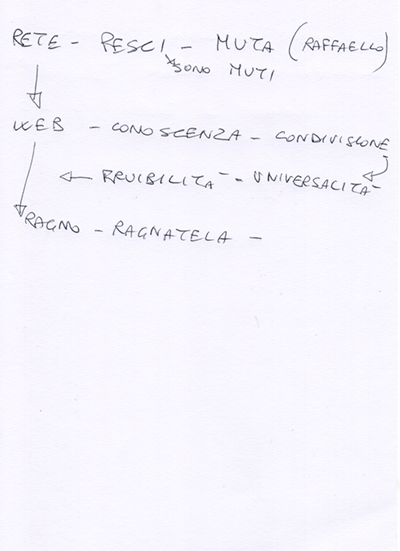 RETE - PESCI - MUTA (RAFFAELLO)
SONO MUTI
WEB - CONOSCENZA - CONDIVISIONE
FRUIBILITÀ - UNIVERSALITÀ
RAGNO - RAGNATELA -